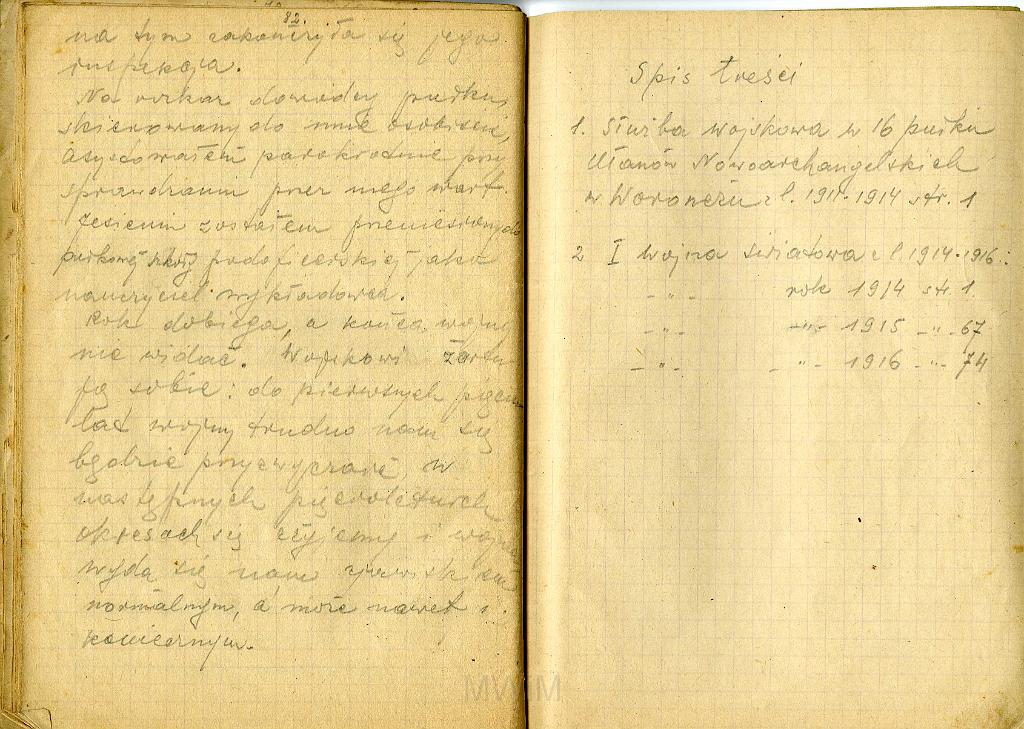 82.
na tym zakończyła się jego
inspekcja.
Na rozkaz dowódcy pułku,
skierowany do mnie osobiście,
asystowałem parokrotnie przy
sprawdzaniu przez niego wart.
Jesienią zostałem przeniesiony do
pułkowej szkoły podoficerskiej jako
nauczyciel wykładowca.
Rok dobiega, a końca wojny
nie widać. Wojskowi żartu
ją sobie: do pierwszych pięciu
lat wojny trudno nam się
będzie przyzwyczaić, w
następnych pięcioletnich
okresach się zżyjemy i wojna
wyda się nam zjawiskiem
normalnym, a może nawet i
koniecznym.
Spis treści
1. Służba wojskowa w 16 pułku
Ułanów Nowoarchangelskich
w Woroneżu z l. 1911-1914 str. 1
2 I wojna światowa z l. 1914-1916:
- " - rok 1914 str. 1
- " - - " - 1915 - " - 67
- " - - " - 1916 - " - 74
MWiM